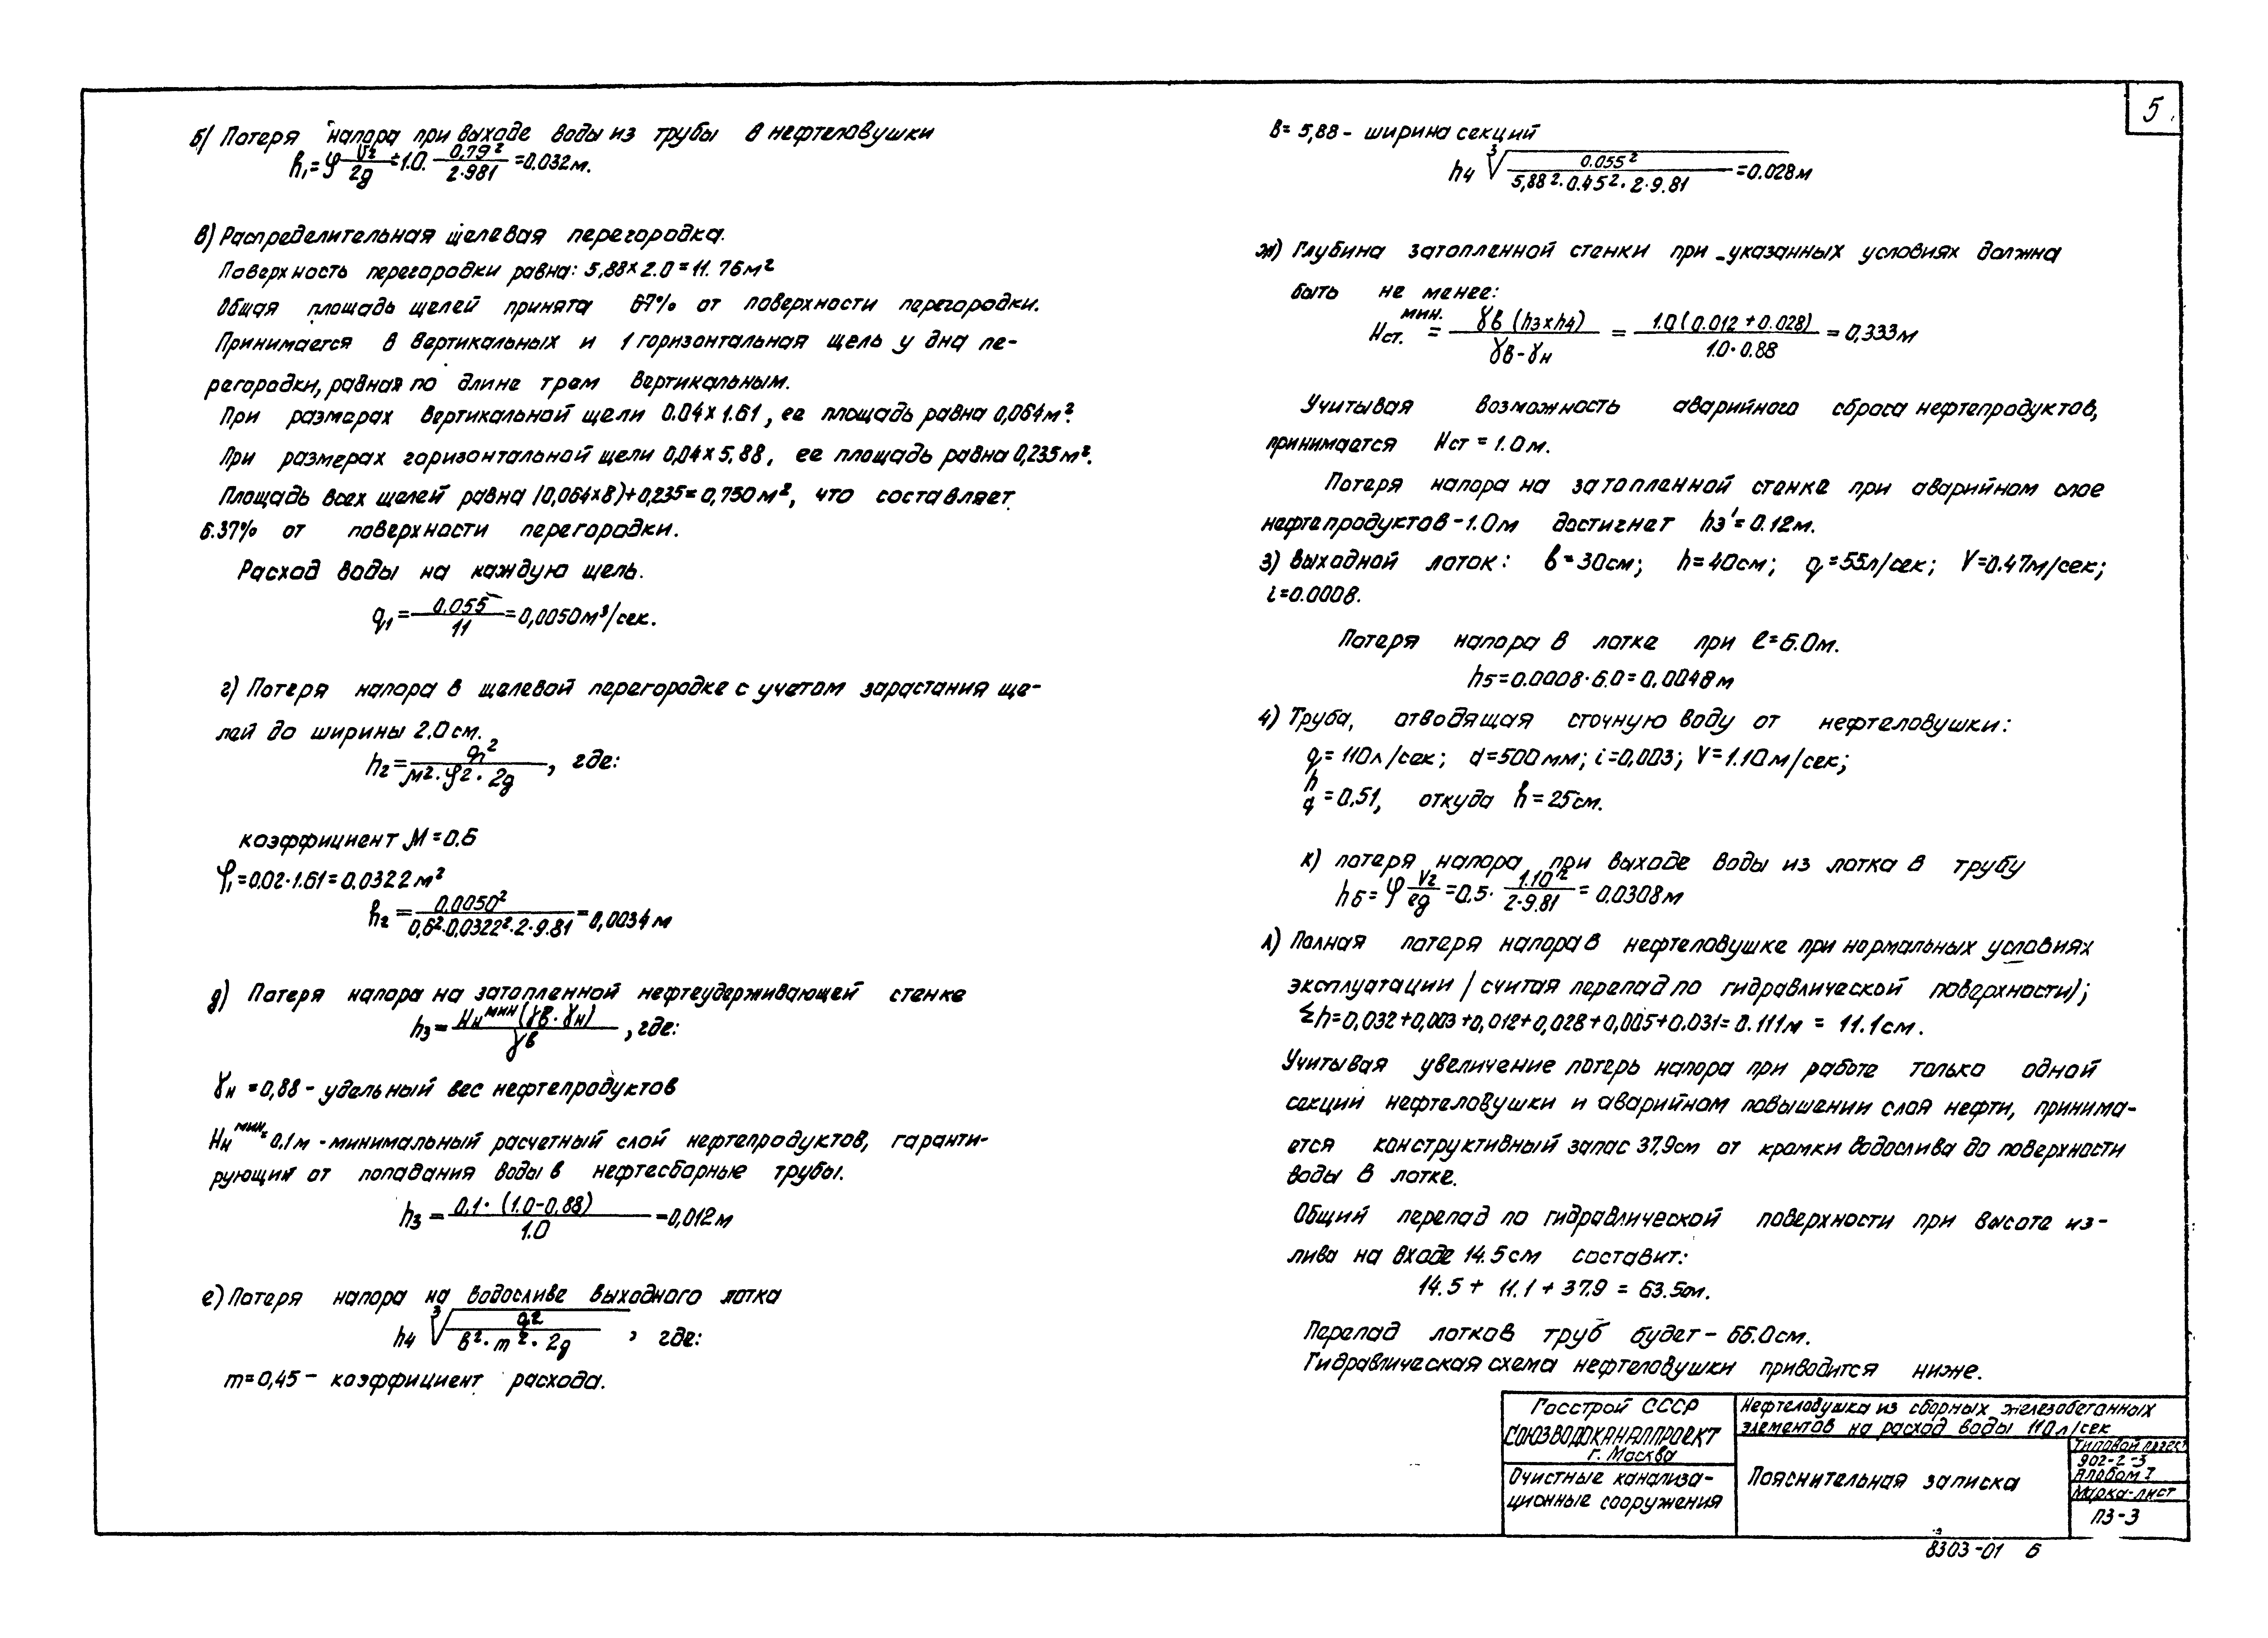 5
б/ Потеря напора при выходе воды из трубы в нефтеловушки
h₁=φ V²/2g =1.0. 0.79²/2·981 =0.032м.
в) Распределительная щелевая перегородка.
Поверхность перегородки равна: 5,88×2.0=11.76м²
Общая площадь щелей принята 6÷7% от поверхности перегородки.
Принимается 8 вертикальных и 1 горизонтальная щель у дна пе-
регородки, равная по длине трем вертикальным.
При размерах вертикальной щели 0.04×1.61, ее площадь равна 0,064м².
При размерах горизонтальной щели 0,04×5,88, ее площадь равна 0,235м².
Площадь всех щелей равна (0,064×8)+0,235=0,750м², что составляет
6.37% от поверхности перегородки.
Расход воды на каждую щель.
q₁= 0.055/11 =0,0050м³/сек.
г) Потеря напора в щелевой перегородке с учетом зарастания ще-
лей до ширины 2.0см.
h₂= q₁²/м²·φ²·2g, где:
коэффициент М=0.6
φ₁=0.02·1.61=0.0322м²
h₂= 0.0050²/0,6²·0,0322²·2·9.81 =0,0034м
д) Потеря напора на затопленной нефтеудерживающей стенке
h₃= Hн мин(γв·γн)/γв, где:
γн =0,88- удельный вес нефтепродуктов
Hн мин= 0.1м -минимальный расчетный слой нефтепродуктов, гаранти-
рующий от попадания воды в нефтесборные трубы.
h₃= 0.1·(1.0-0,88)/1.0 =0,012м
е) Потеря напора на водосливе выходного лотка
h₄ ∛q²/в²·m²·2g, где:
m=0,45- коэффициент расхода.
в= 5,88- ширина секций
h₄ ∛0.055²/5,88²·0.45²·2·9.81 =0.028м
ж) Глубина затопленной стенки при указанных условиях должна
быть не менее:
Hст. мин. = γв (h₃×h₄)/γв-γн = 1.0(0.012+0.028)/1.0·0.88 = 0,333м
Учитывая возможность аварийного сброса нефтепродуктов,
принимается Hст = 1.0м.
Потеря напора на затопленной стенке при аварийном слое
нефтепродуктов-1.0м достигнет h₃'=0.12м.
з) Выходной лоток: в=30см; h=40см; q=55л/сек; V=0.47м/сек;
i=0.0008.
Потеря напора в лотке при ℓ=6.0м.
h₅=0.0008·6.0=0.0048м
4) Труба, отводящая сточную воду от нефтеловушки:
q=110л/сек; d=500мм; i=0,003; V=1.10м/сек;
h/d =0,51, откуда h=25см.
к) потеря напора при выходе воды из лотка в трубу
h₆= φ V²/2g =0.5· 1.10²/2·9.81 = 0.0308м
л) Полная потеря напора в нефтеловушке при нормальных условиях
эксплуатации /считая перепад по гидравлической поверхности);
Σh=0,032+0,003+0,012+0,028+0,005+0.031=0.111м = 11.1см.
Учитывая увеличение потерь напора при работе только одной
секции нефтеловушки и аварийном повышении слоя нефти, принима-
ется конструктивный запас 37,9см от кромки водослива до поверхности
воды в лотке.
Общий перепад по гидравлической поверхности при высоте из-
лива на входе 14.5см составит:
14.5+ 11.1+37.9 = 63.5см.
Перепад лотков труб будет- 66.0см.
Гидравлическая схема нефтеловушки приводится ниже.
Госстрой СССР
СОЮЗВОДОКАНАЛПРОЕКТ
г. Москва
Очистные канализа-
ционные сооружения
Нефтеловушка из сборных железобетонных
элементов на расход воды 110л/сек
Пояснительная записка
Типовой проект
902-2-3
Альбом I
Марка-лист
ПЗ-3
8303-01 6